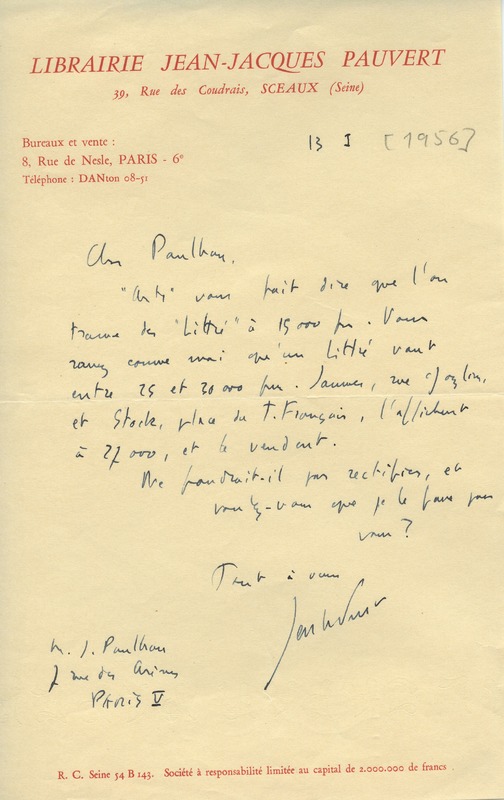 LIBRAIRIE JEAN-JACQUES PAUVERT
39, Rue des Coudrais, SCEAUX (Seine)
Bureaux et vente :
8, Rue de Nesle, PARIS - 6e
Téléphone : DANton 08-51
13 I [1956]
Cher Paulhan,
"Arts" vous fait dire que l'on
trouve des "Littré" à 15 000 frs. Vous
savez comme moi qu'un Littré vaut
entre 25 et 30 000 frs. , rue
et Stock, place du T. Français, l'affichent
à 27 000, et le vendent.
Ne faudrait-il pas rectifier, et
voulez-vous que je le fasse pour
vous ?
Tout à vous
M. J. Paulhan
7 rue des Arènes
PARIS V
R. C. Seine 54 B 143. Société à responsabilité limitée au capital de 2.000.000 de francs